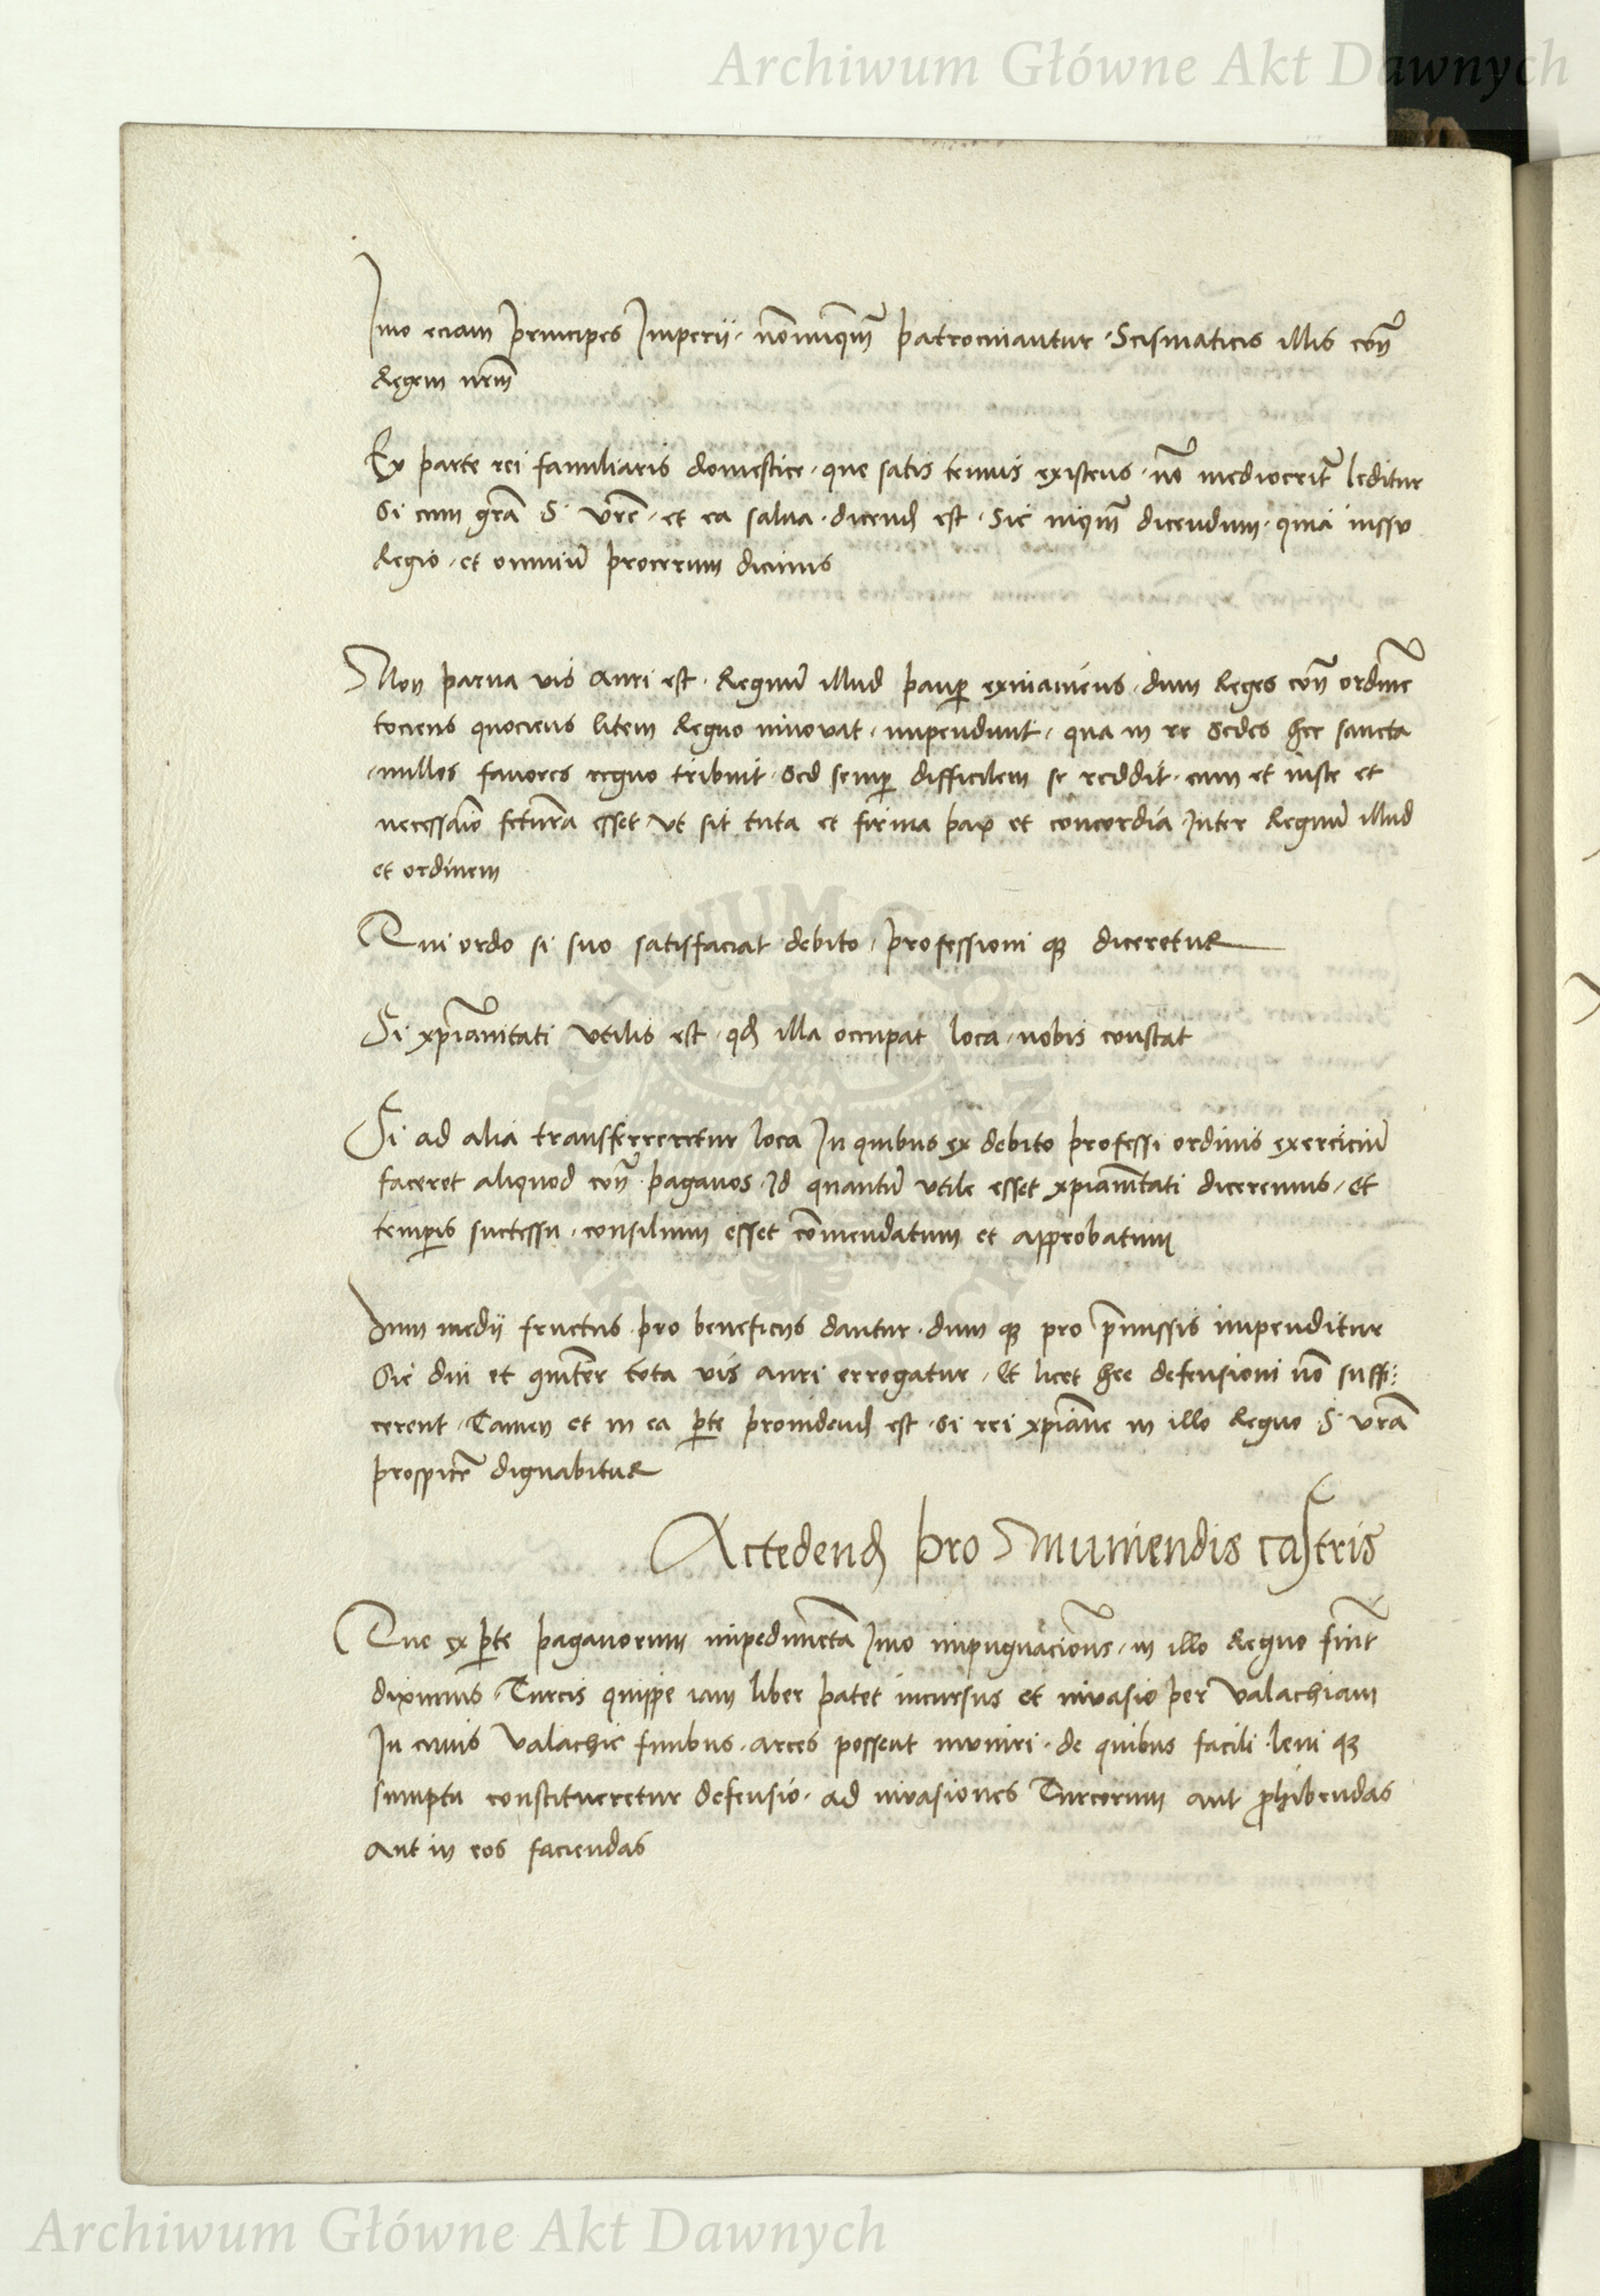 Archiwum Główne Akt Dawnych
Imo eciam principes Imperii · nōnunqm̄ patrocinantur · Scismaticis illis cōn̄
Regem nrm̄
Ex parte rei familiaris domestice · que satis tenuis existens · nō mediocrit̄ leditur
Si cum grā S · vr̄e · et ea salua · dicend est · Sic niqm̄ dicendum · quia iussu
Regio · et omniū procerum dicimus
Non parua vis auri est · Regnū illud paup exinaniens · dum Reges cōn̄ ordinē
tociens quociens litem Regno innovat · impendunt · qua in re Sedes hec sancta
nullos fauores regno tribuit · Sed semp difficilem se reddit · cum et iuste et
necessaīo fctura esset vt sit tuta et firma pax et concordia Inter Regnū illud
et ordinem
Qui ordo si suo satisfaciat debito · professioni qȝ diceretur
Si xp̄ianitati vtilis est · qd illa occupat loca · nobis constat
Si ad alia transferreretur loca In quibus ex debito professi ordinis exerciciū
faceret aliquod cōn̄ paganos · Id quantū vtile esset xpianitati diceremus · Et
tempis successu · consilium esset cōmendatum et approbatum
Dum medii fructus pro beneficiis dantur · dum qȝ pro p̄missis impenditur
Sic diu et gnit̄er tota vis auri errogatur · Et licet hec defensioni nō suffi:
cerent · Tamen et in ea pte prouidend est · Si rei xpiane in illo Regno S · vrā
prospicēr dignabitur
Accedend pro Muniendis castris
Que ex pte paganorum impedimēta Imo impugnaciones · in illo Regno fiūt
diximus · Turcis quippe iam liber patet incursus et inuasio per Valachiam
In cuius Valachie finibus · arces possent muniri · de quibus facili leui qȝ
sumptu constitueretur defensio · ad inuasiones Turcorum aut prohibendas
Aut in eos faciendas
Archiwum Główne Akt Dawnych